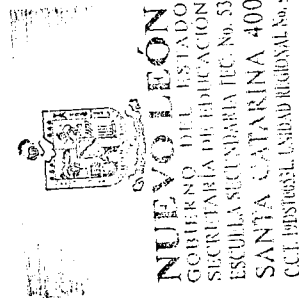 NUEVO LEÓN
GOBIERNO DEL ESTADO
SECRETARÍA DE EDUCACIÓN
ESCUELA SECUNDARIA TEC. No. 53
SANTA CATARINA 400
CCT. UNIDAD REGIONAL No.